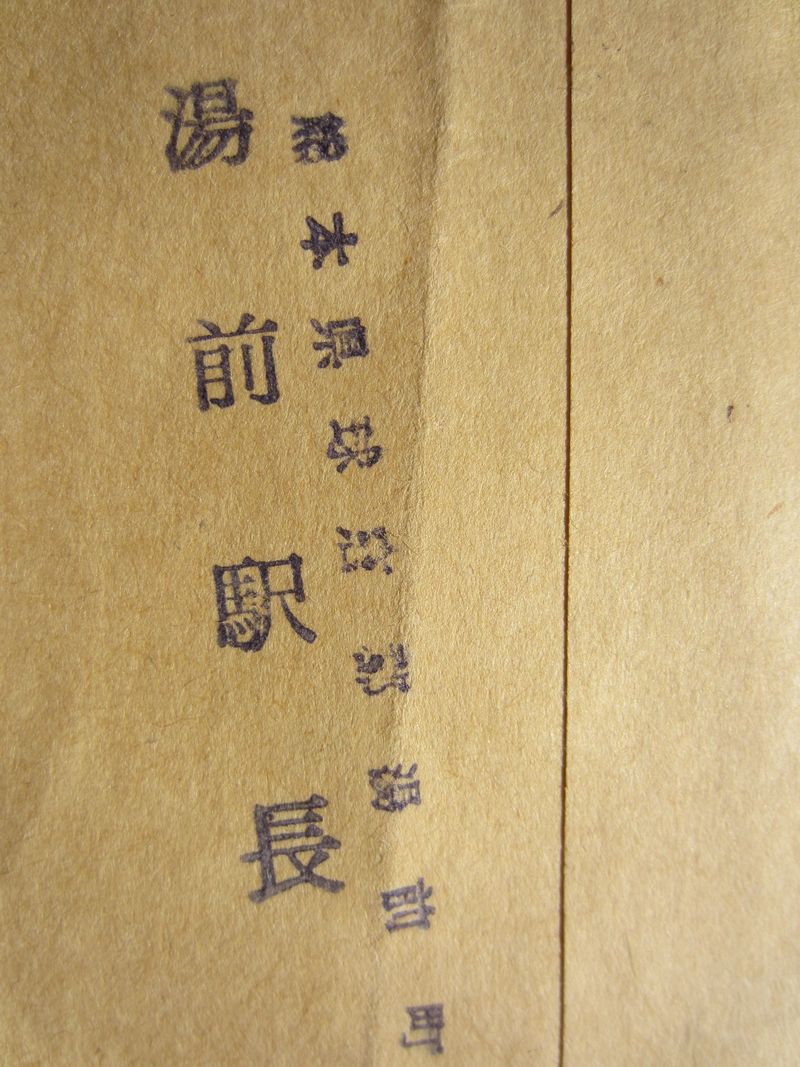 熊本県球磨郡湯前町
湯前駅長